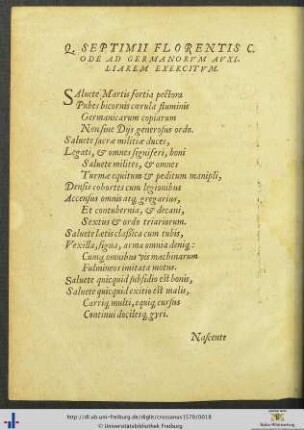 Q. SEPTIMII FLORENTIS C.
ODE AD GERMANORVM AVXI-
LIAREM EXERCITVM.
SAluete Martis fortia pectora
Pubes bicornis cærula fluminis
Germanicarum copiarum
Non sine Dijs generosus ordo.
Saluete sacræ militiæ duces,
Legati, & omnes signiferi, boni
Saluete milites, & omnes
Turmæ equitum & peditum manipli,
Densis cohortes cum legionibus
Accensus omnis atq; gregarius,
Et contubernia, & decani,
Sextus & ordo triariorum.
Saluete lætis classica cum tubis,
Vexilla, signa, arma omnia deniq;:
Cumq; omnibus vis machinarum
Fulmineos imitata motus.
Saluete quicquid subsidio est bonis,
Saluete quicquid exitio est malis,
Carriq; multi, equiq; cursus
Continui docilesq; gyri.
Nascente
http://dl.ub.uni-freiburg.de/diglit/croccanus1578/0018
© Universitätsbibliothek Freiburg
Baden-Württemberg